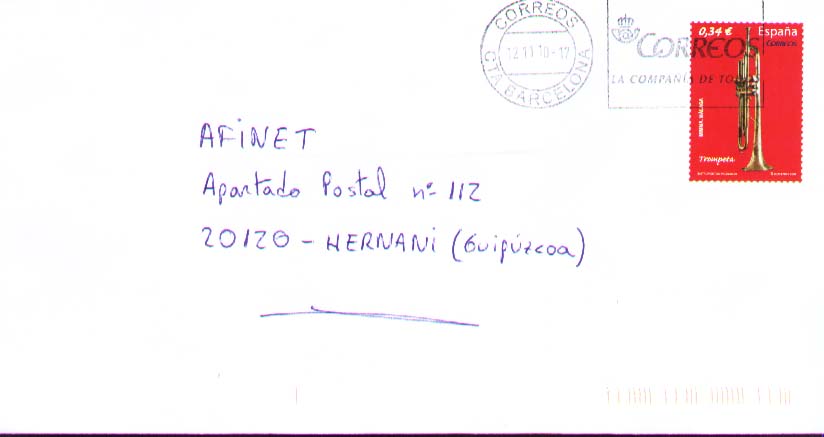 CORREOS
12 11 10 - 12
CTA. BARCELONA
CORREOS
LA COMPAÑÍA DE TODOS
0,34 € España
CORREOS
Trompeta
AFiNET
Apartado Postal nº 112
20120 - HERNANi (Guipúzcoa)